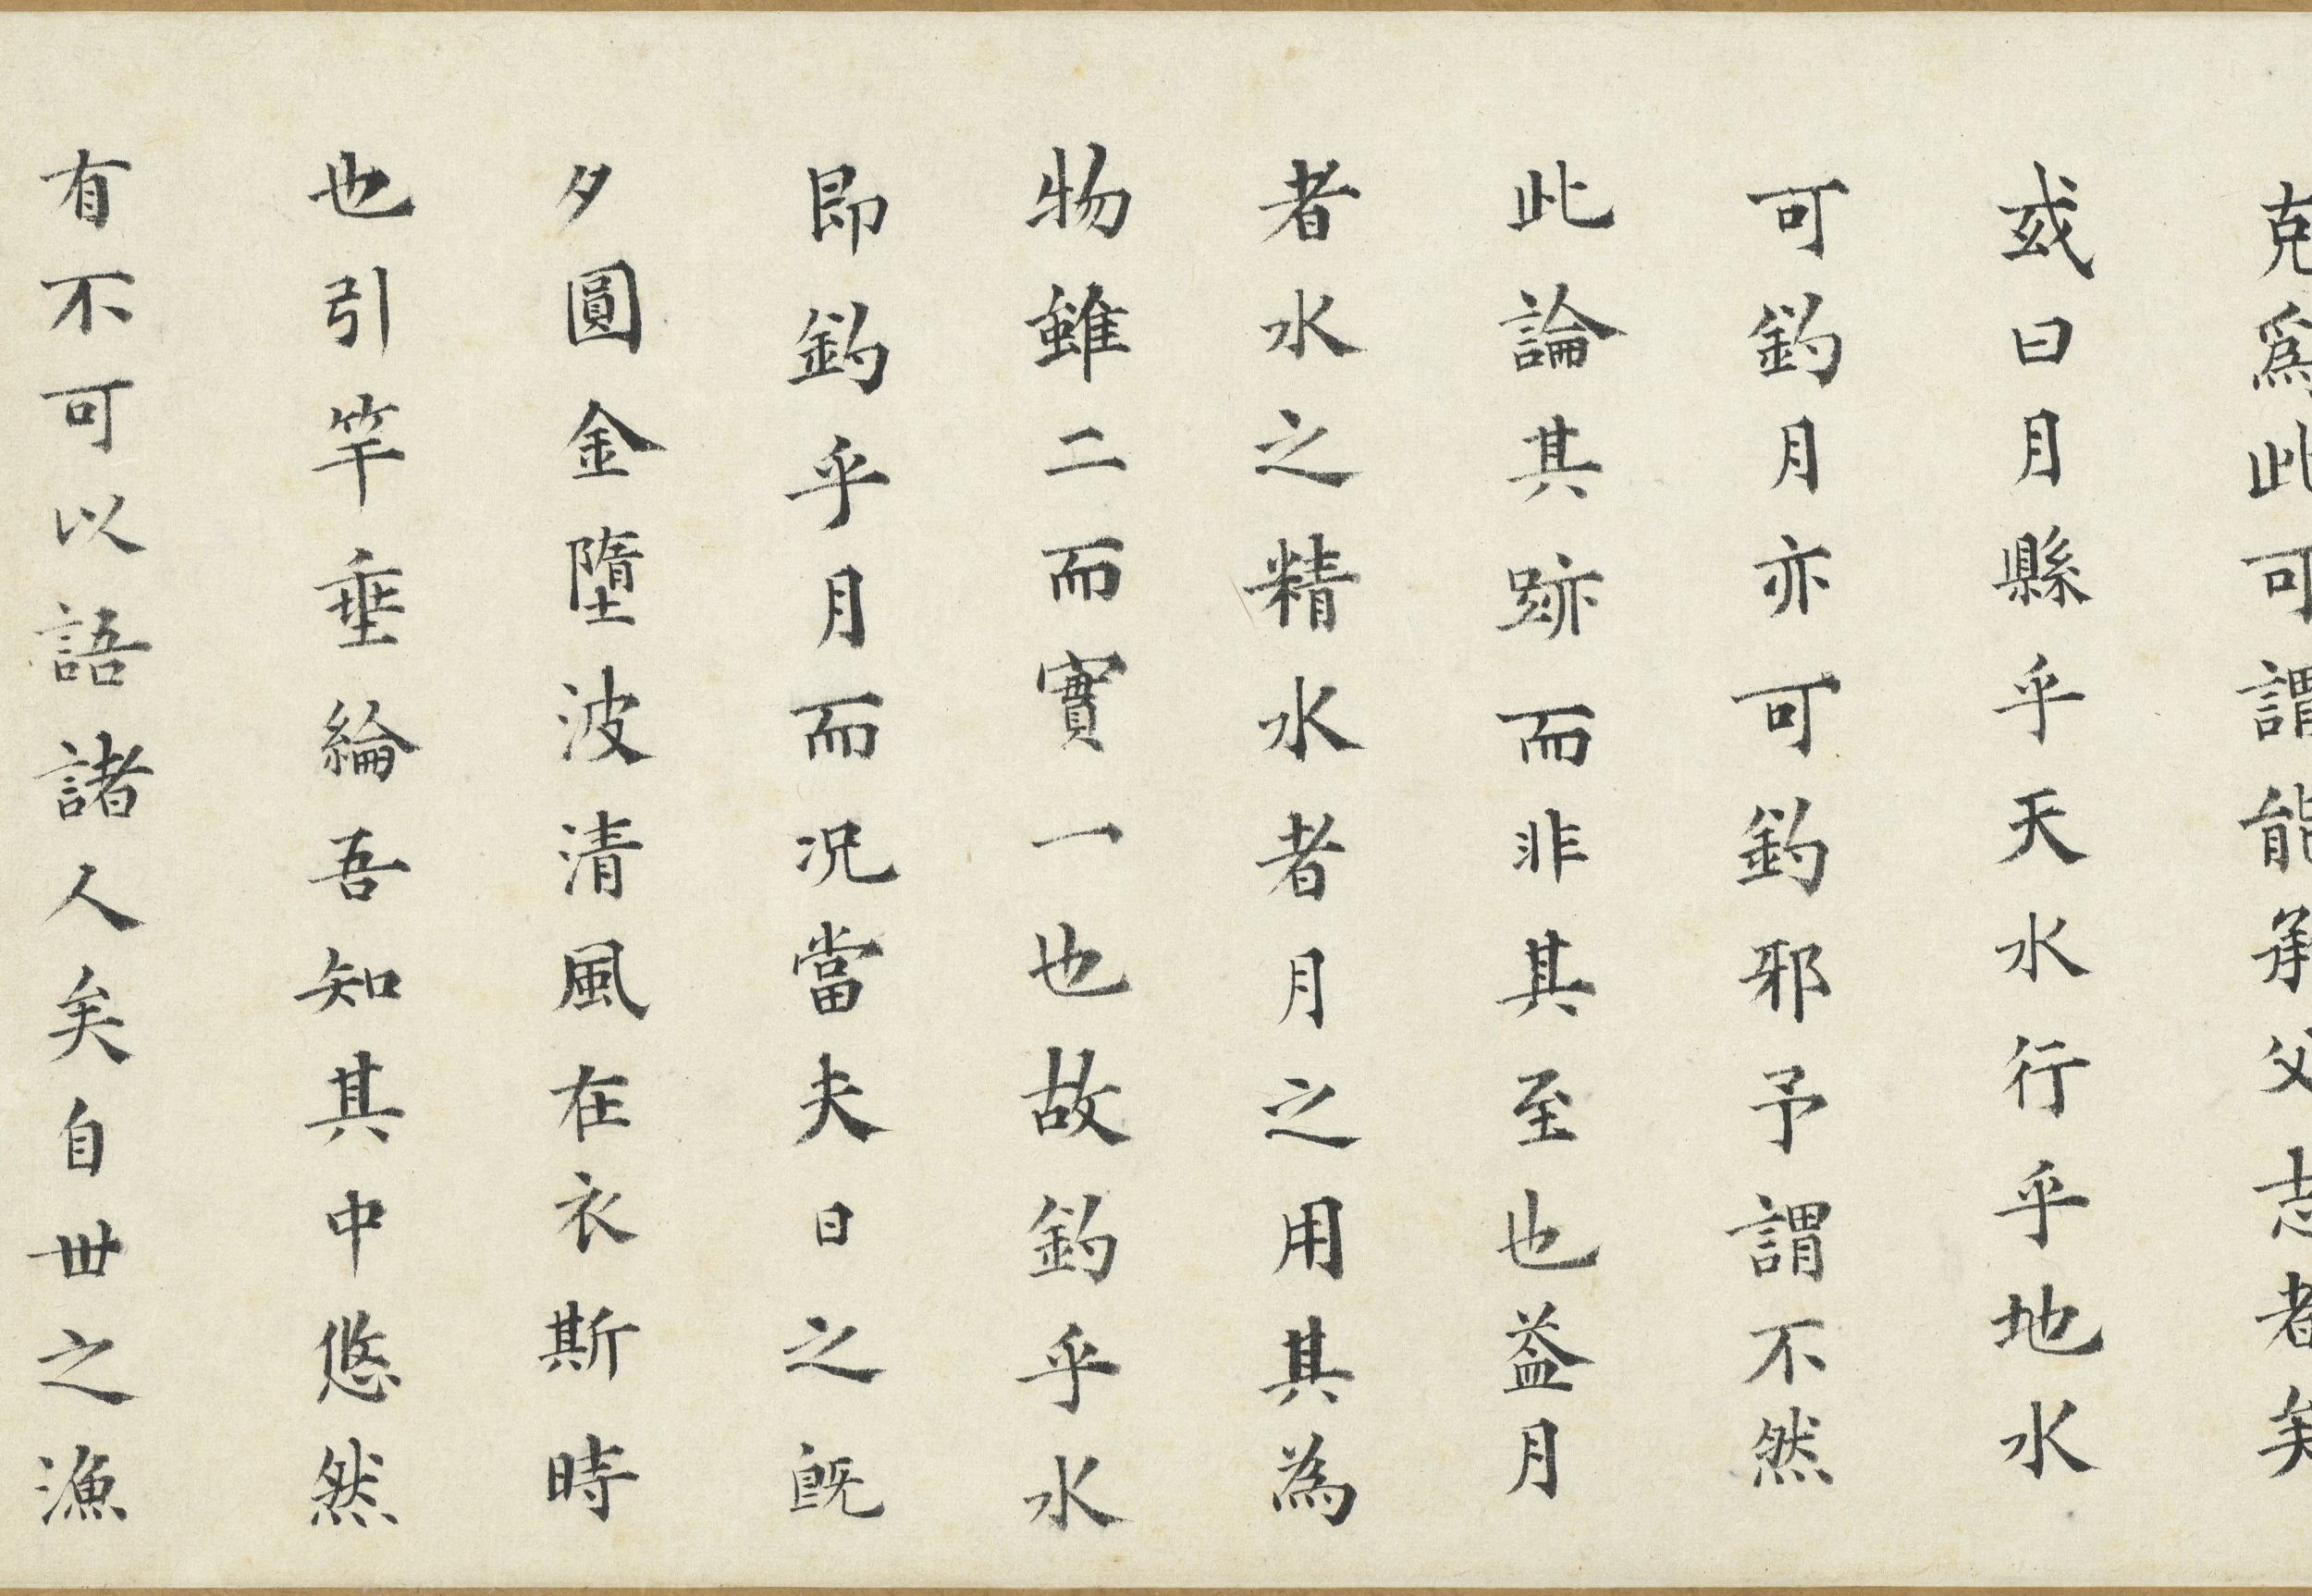 克爲此可謂能承父志者矣
或曰月縣乎天水行乎地水
可釣月亦可釣邪予謂不然
此論其跡而非其至也蓋月
者水之精水者月之用其為
物雖二而實一也故釣乎水
即釣乎月而况當夫日之既
夕圓金墮波清風在衣斯時
也引竿垂綸吾知其中悠然
有不可以語諸人矣自世之漁